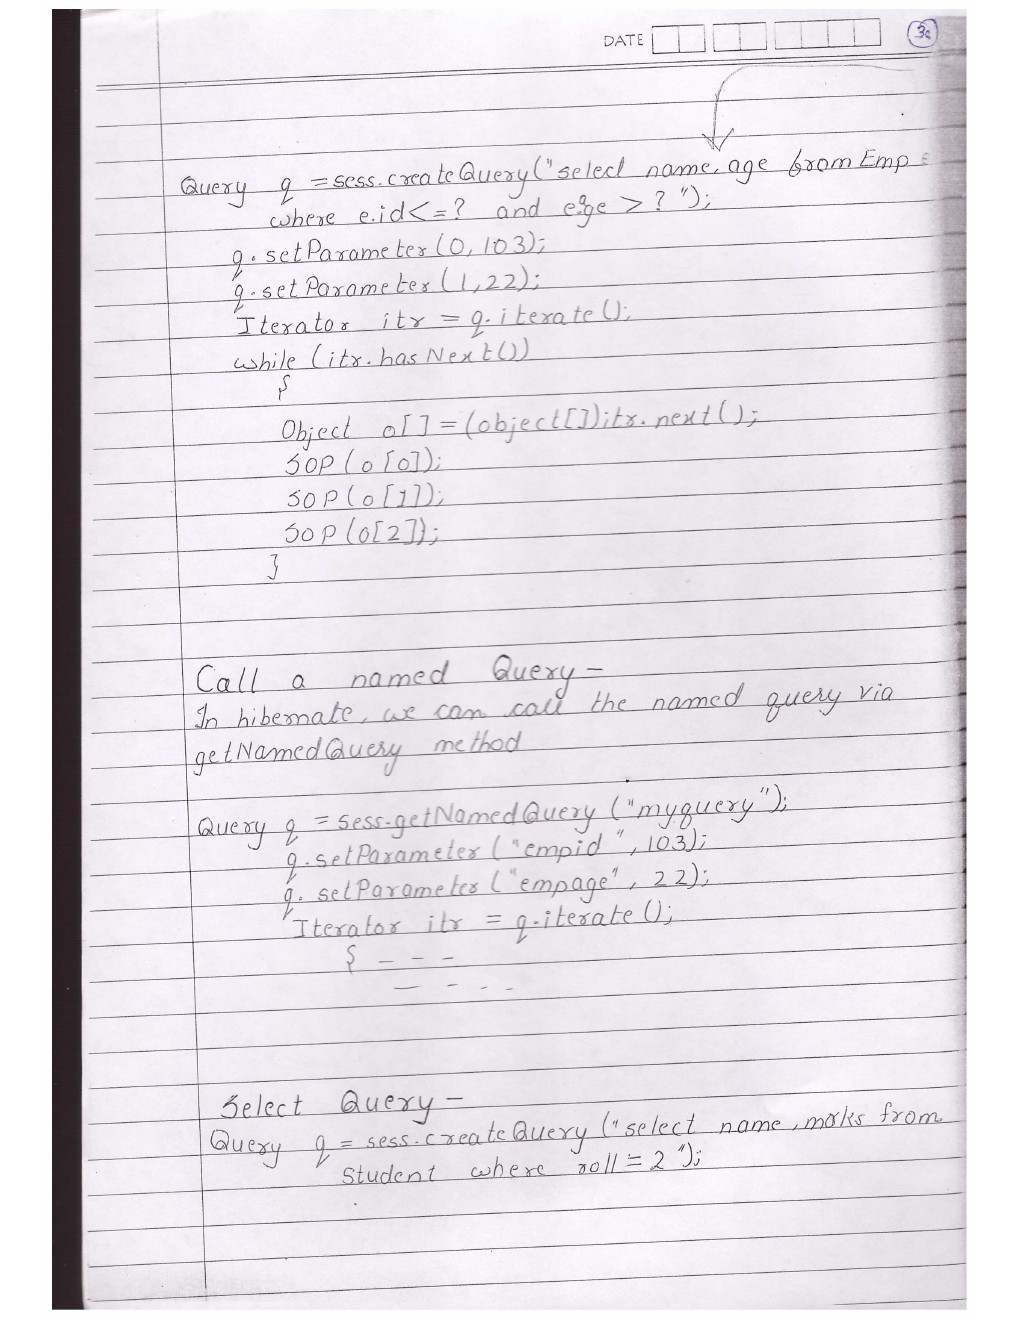 DATE
Query q = sess.createQuery("select name, age from Emp e
where e.id<=? and e.age > ? ");
q.setParameter(0, 103);
q.setParameter(1,22);
Iterator itr = q.iterate();
while (itr.hasNext())
{
Object o[] = (object[])itr.next();
SOP (o[0]);
SOP (o[1]);
SOP (o[2]);
}
Call a named Query -
In hibernate, we can call the named query via
getNamedQuery method
Query q = sess.getNamedQuery ("myquery");
q.setParameter ("empid", 103);
q.setParameter ("empage", 22);
Iterator itr = q.iterate ();
{ - - -
- - - -
Select Query -
Query q = sess.createQuery ("select name, marks from
Student where roll = 2 ");